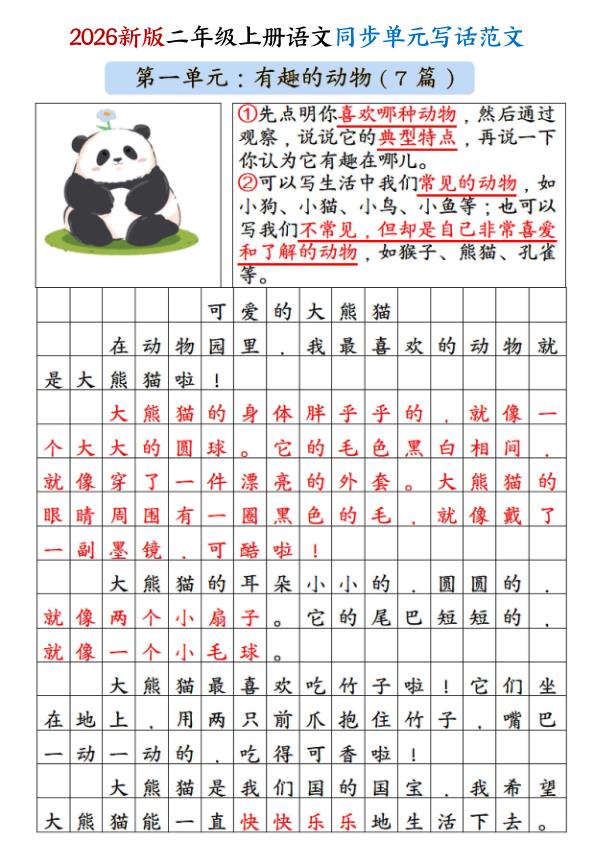 2026新版二年级上册语文同步单元写话范文
第一单元：有趣的动物（7篇）
①先点明你喜欢哪种动物，然后通过
观察，说说它的典型特点，再说一下
你认为它有趣在哪儿。
②可以写生活中我们常见的动物，如
小狗、小猫、小鸟、小鱼等；也可以
写我们不常见，但却是自己非常喜爱
和了解的动物，如猴子、熊猫、孔雀
等。
可爱的大熊猫
在动物园里，我最喜欢的动物就
是大熊猫啦！
大熊猫的身体胖乎乎的，就像一
个大大的圆球。它的毛色黑白相间，
就像穿了一件漂亮的外套。大熊猫的
眼睛周围有一圈黑色的毛，就像戴了
一副墨镜，可酷啦！
大熊猫的耳朵小小的，圆圆的，
就像两个小扇子。它的尾巴短短的，
就像一个小毛球。
大熊猫最喜欢吃竹子啦！它们坐
在地上，用两只前爪抱住竹子，嘴巴
一动一动的，吃得可香啦！
大熊猫是我们国的国宝，我希望
大熊猫能一直快快乐乐地生活下去。